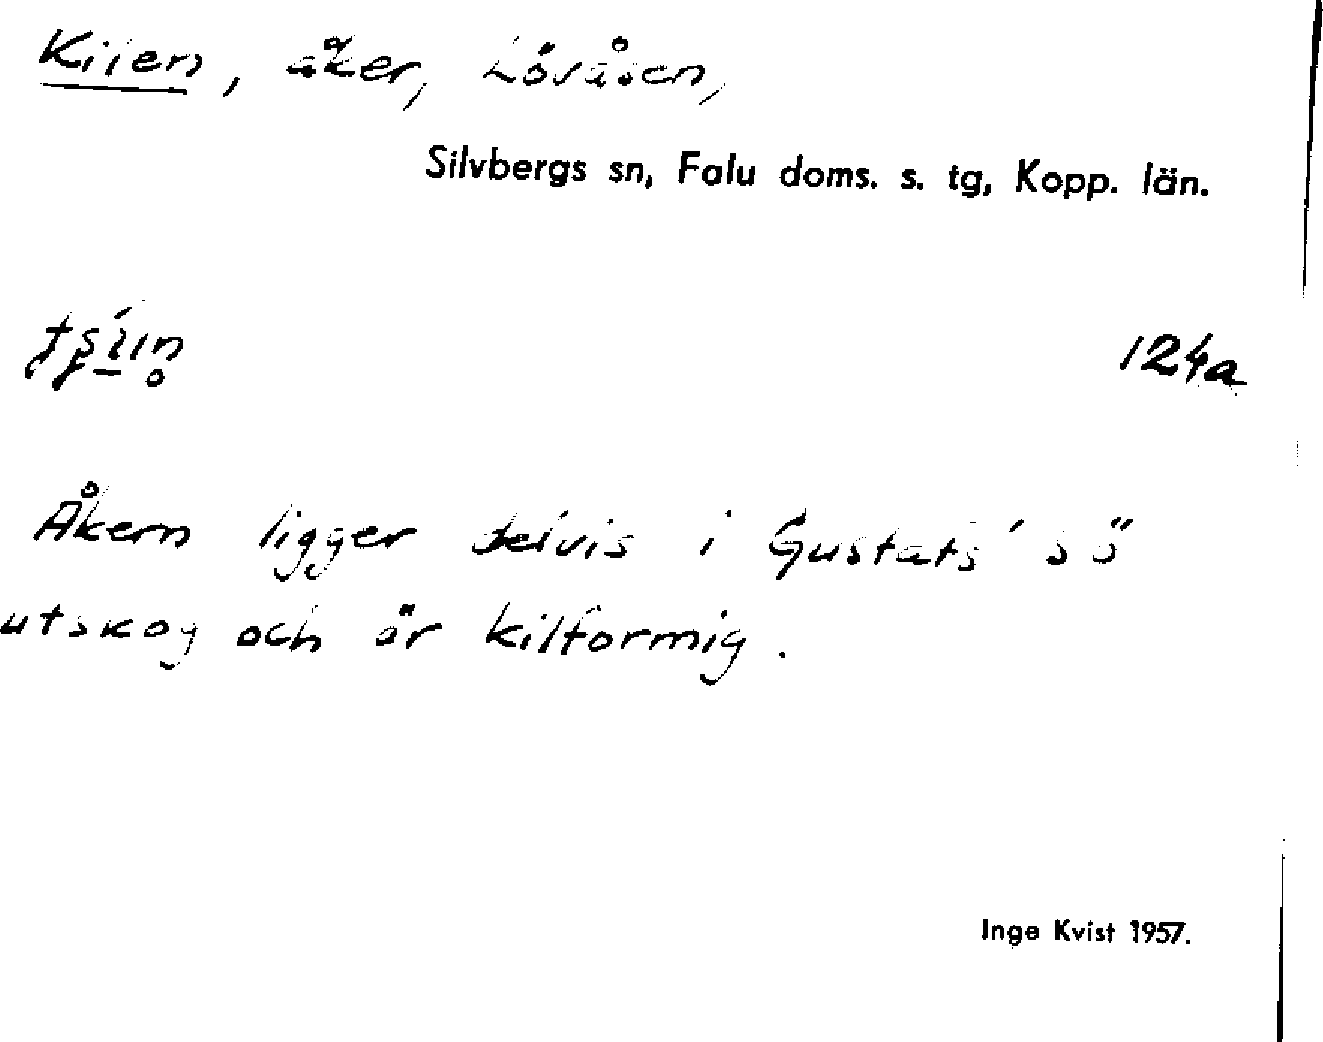 Kilen, åker, Lövåsen,
Silvbergs sn, Falu doms. s. tg, Kopp. län.
124a
Åkern ligger delvis i Gustafs' s ö
utskog och är kilformig.
Inge Kvist 1957.